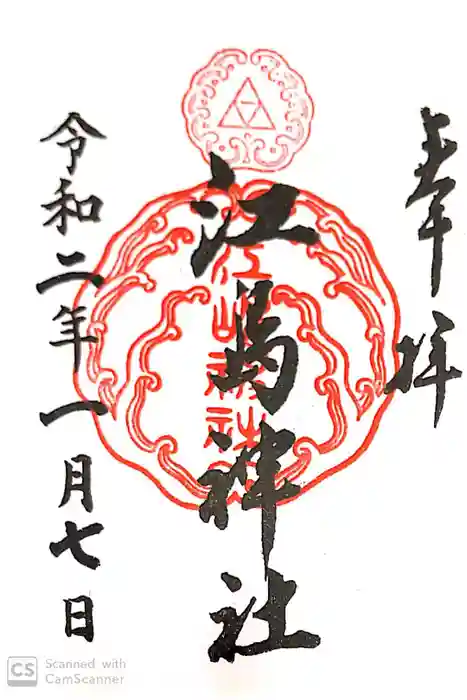 奉拝
江島神社
令和二年一月七日
CS Scanned with
CamScanner